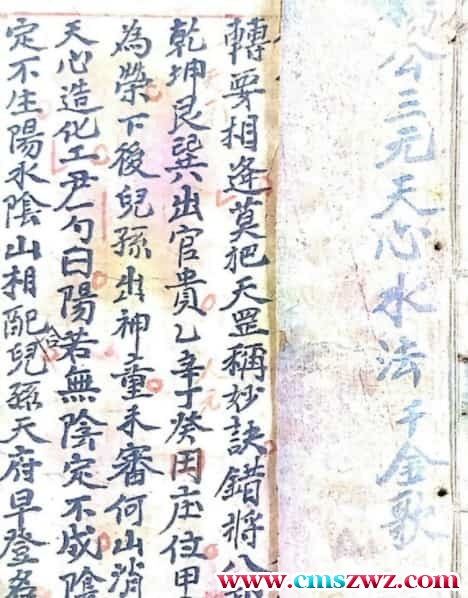 公三元天心水法 千金歌
轉要相逢莫把天罡稱妙訣錯將八
乾坤艮巽出官貴乙辛丁癸田庄位甲
為榮下後兒孫出神童未審何山消
天心造化工尹勺曰陽若無陰定不成陰
定不生陽水陰山相配合兒孫天府早登名
www.cmszwz.com